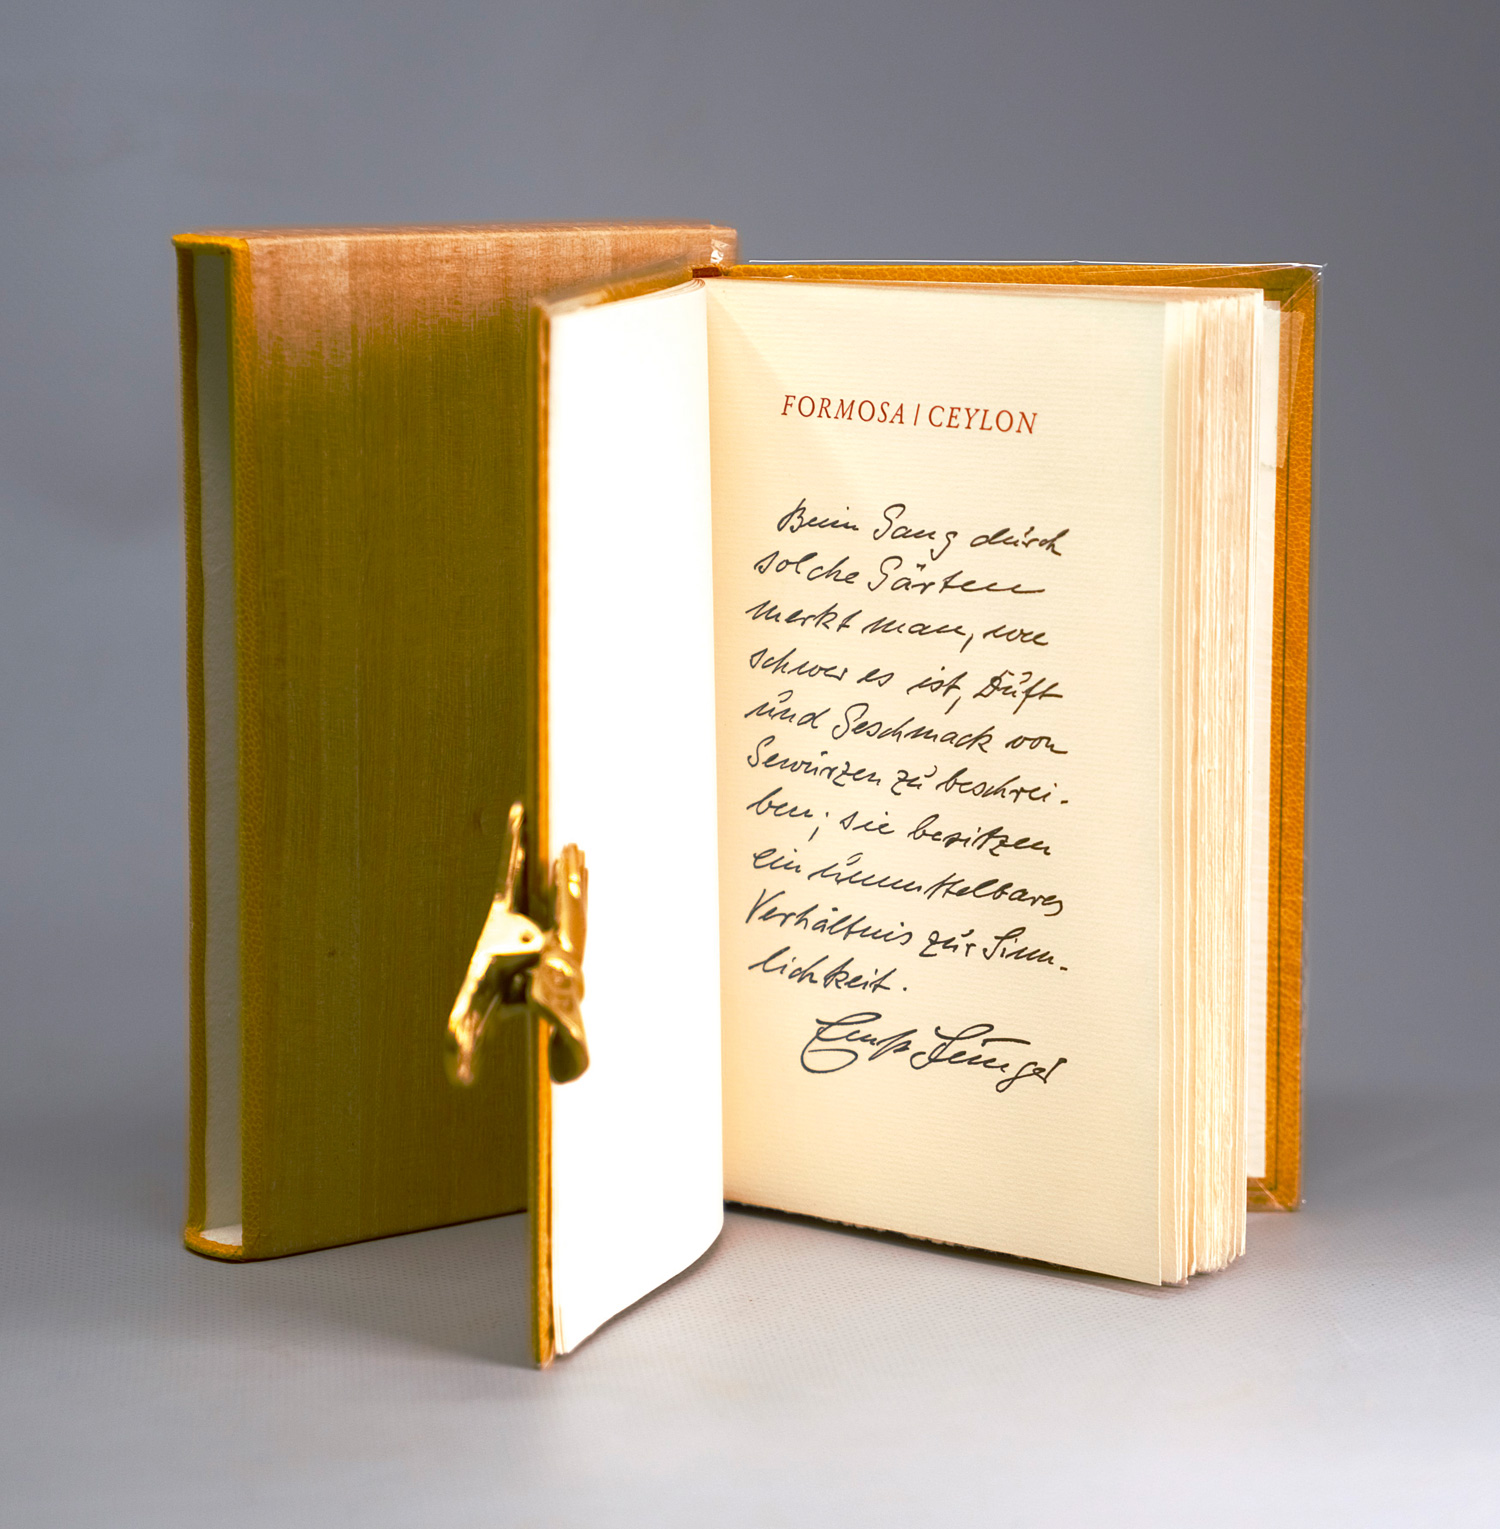 FORMOSA | CEYLON
Beim Gang durch
solche Gärten
merkt man, wie
schwer es ist, Duft
und Geschmack von
Gewürzen zu beschrei-
ben; sie besitzen
ein unmittelbares
Verhältnis zur Sinn-
lichkeit.
Ernst Jünger